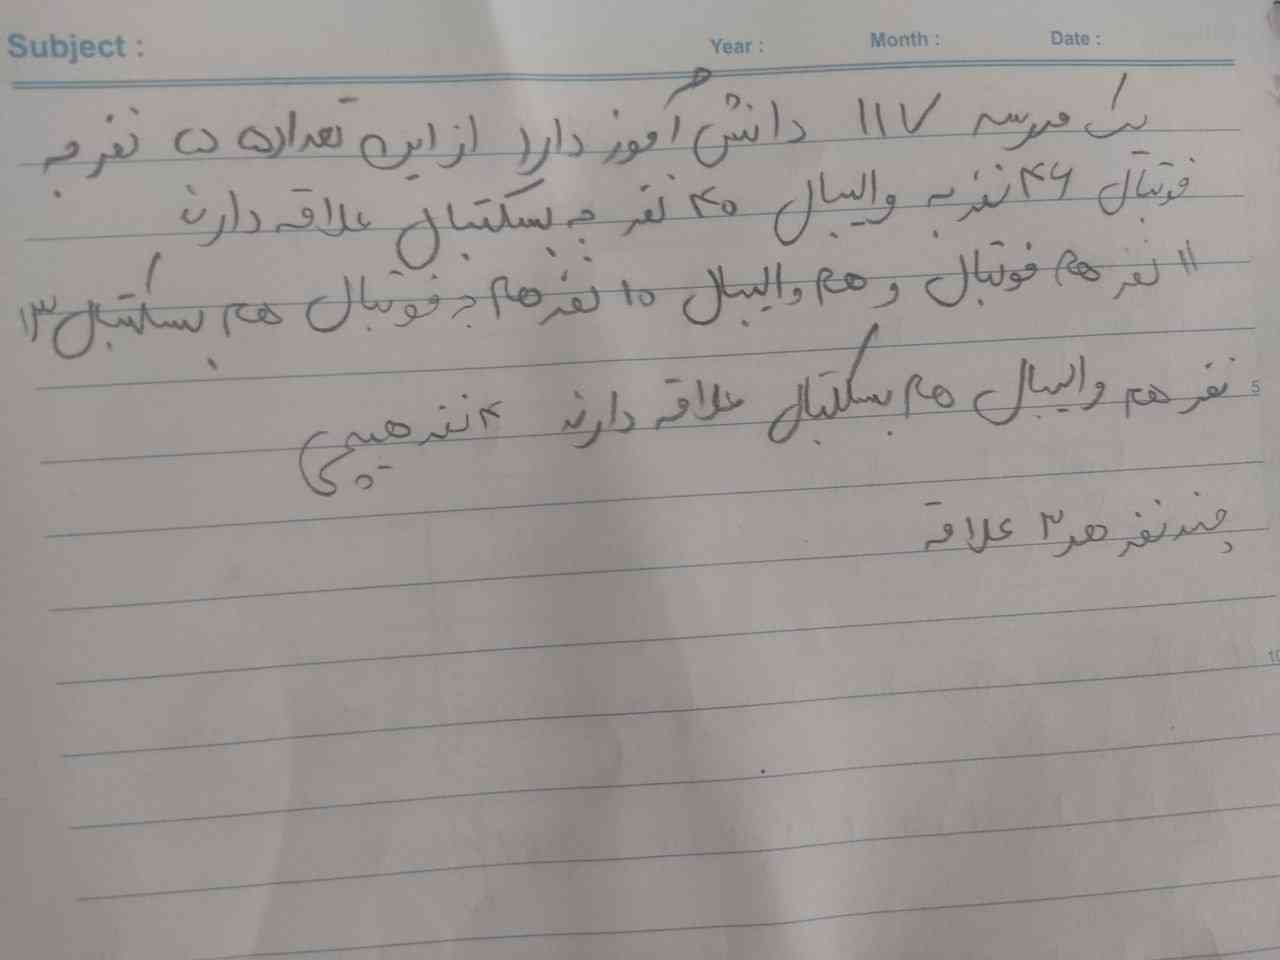 Subject :
Year :
Month :
Date :
یک مدرسه ۱۱۷ دانش آموز دارد از این تعداد ۵۰ نفر به
فوتبال ۴۶ نفر به والیبال ۴۰ نفر به بسکتبال علاقه دارند
۱۱ نفر هم فوتبال و هم والیبال ۱۰ نفر هم به فوتبال هم بسکتبال ۱۳
نفر هم والیبال هم بسکتبال علاقه دارند ۴ نفر هیچی
5
چند نفر هر ۳ علاقه
10